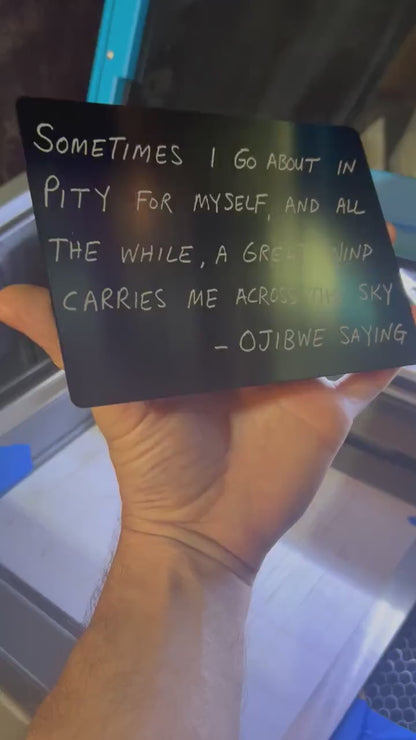 SOMETIMES I GO ABOUT IN
PITY FOR MYSELF, AND ALL
THE WHILE, A GREAT WIND
CARRIES ME ACROSS THE SKY
– OJIBWE SAYING